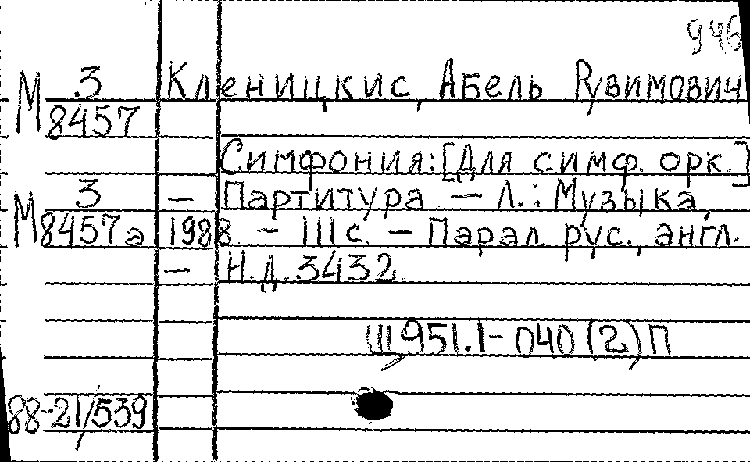 946
М 3/8457 Кленицкис, Абель Рувимович
Симфония: [Для симф. орк.]
М 3/8457а — Партитура — Л.: Музыка,
1988. — 111 с. — Парал. рус., англ.
— Н.Д. 3432
Щ951.1-040(2)П
88-21/539